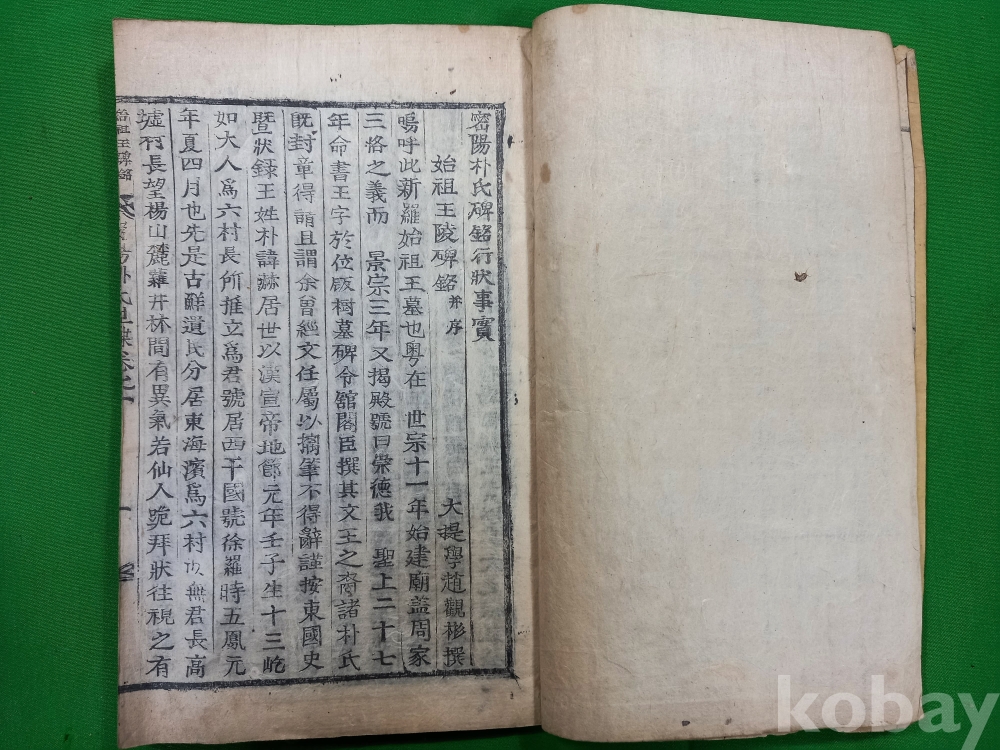 密陽朴氏碑銘行狀事實
始祖王陵碑銘 并序
大提學趙觀彬撰
嗚呼此新羅始祖王墓也粤在 世宗十一年始建廟盖周家
三恪之義而 景宗三年又揭殿號曰崇德我 聖上二十七
年命書王字於位版樹墓碑令舘閣臣撰其文王之裔諸朴氏
旣封章得請且謂余曾經文任屬以摛筆不得辭謹按東國史
暨狀録王姓朴諱赫居世以漢宣帝地節元年壬子生十三屹
如大人爲六村長所推立爲君號居西干國號徐羅時五鳳元
年夏四月也先是古鮮遺民分居東海濱爲六村以無君長高
墟村長望楊山麓蘿井林間有異氣若仙人跪拜狀往視之有
始祖王碑銘
密陽朴氏世牒卷之一
一
kobay